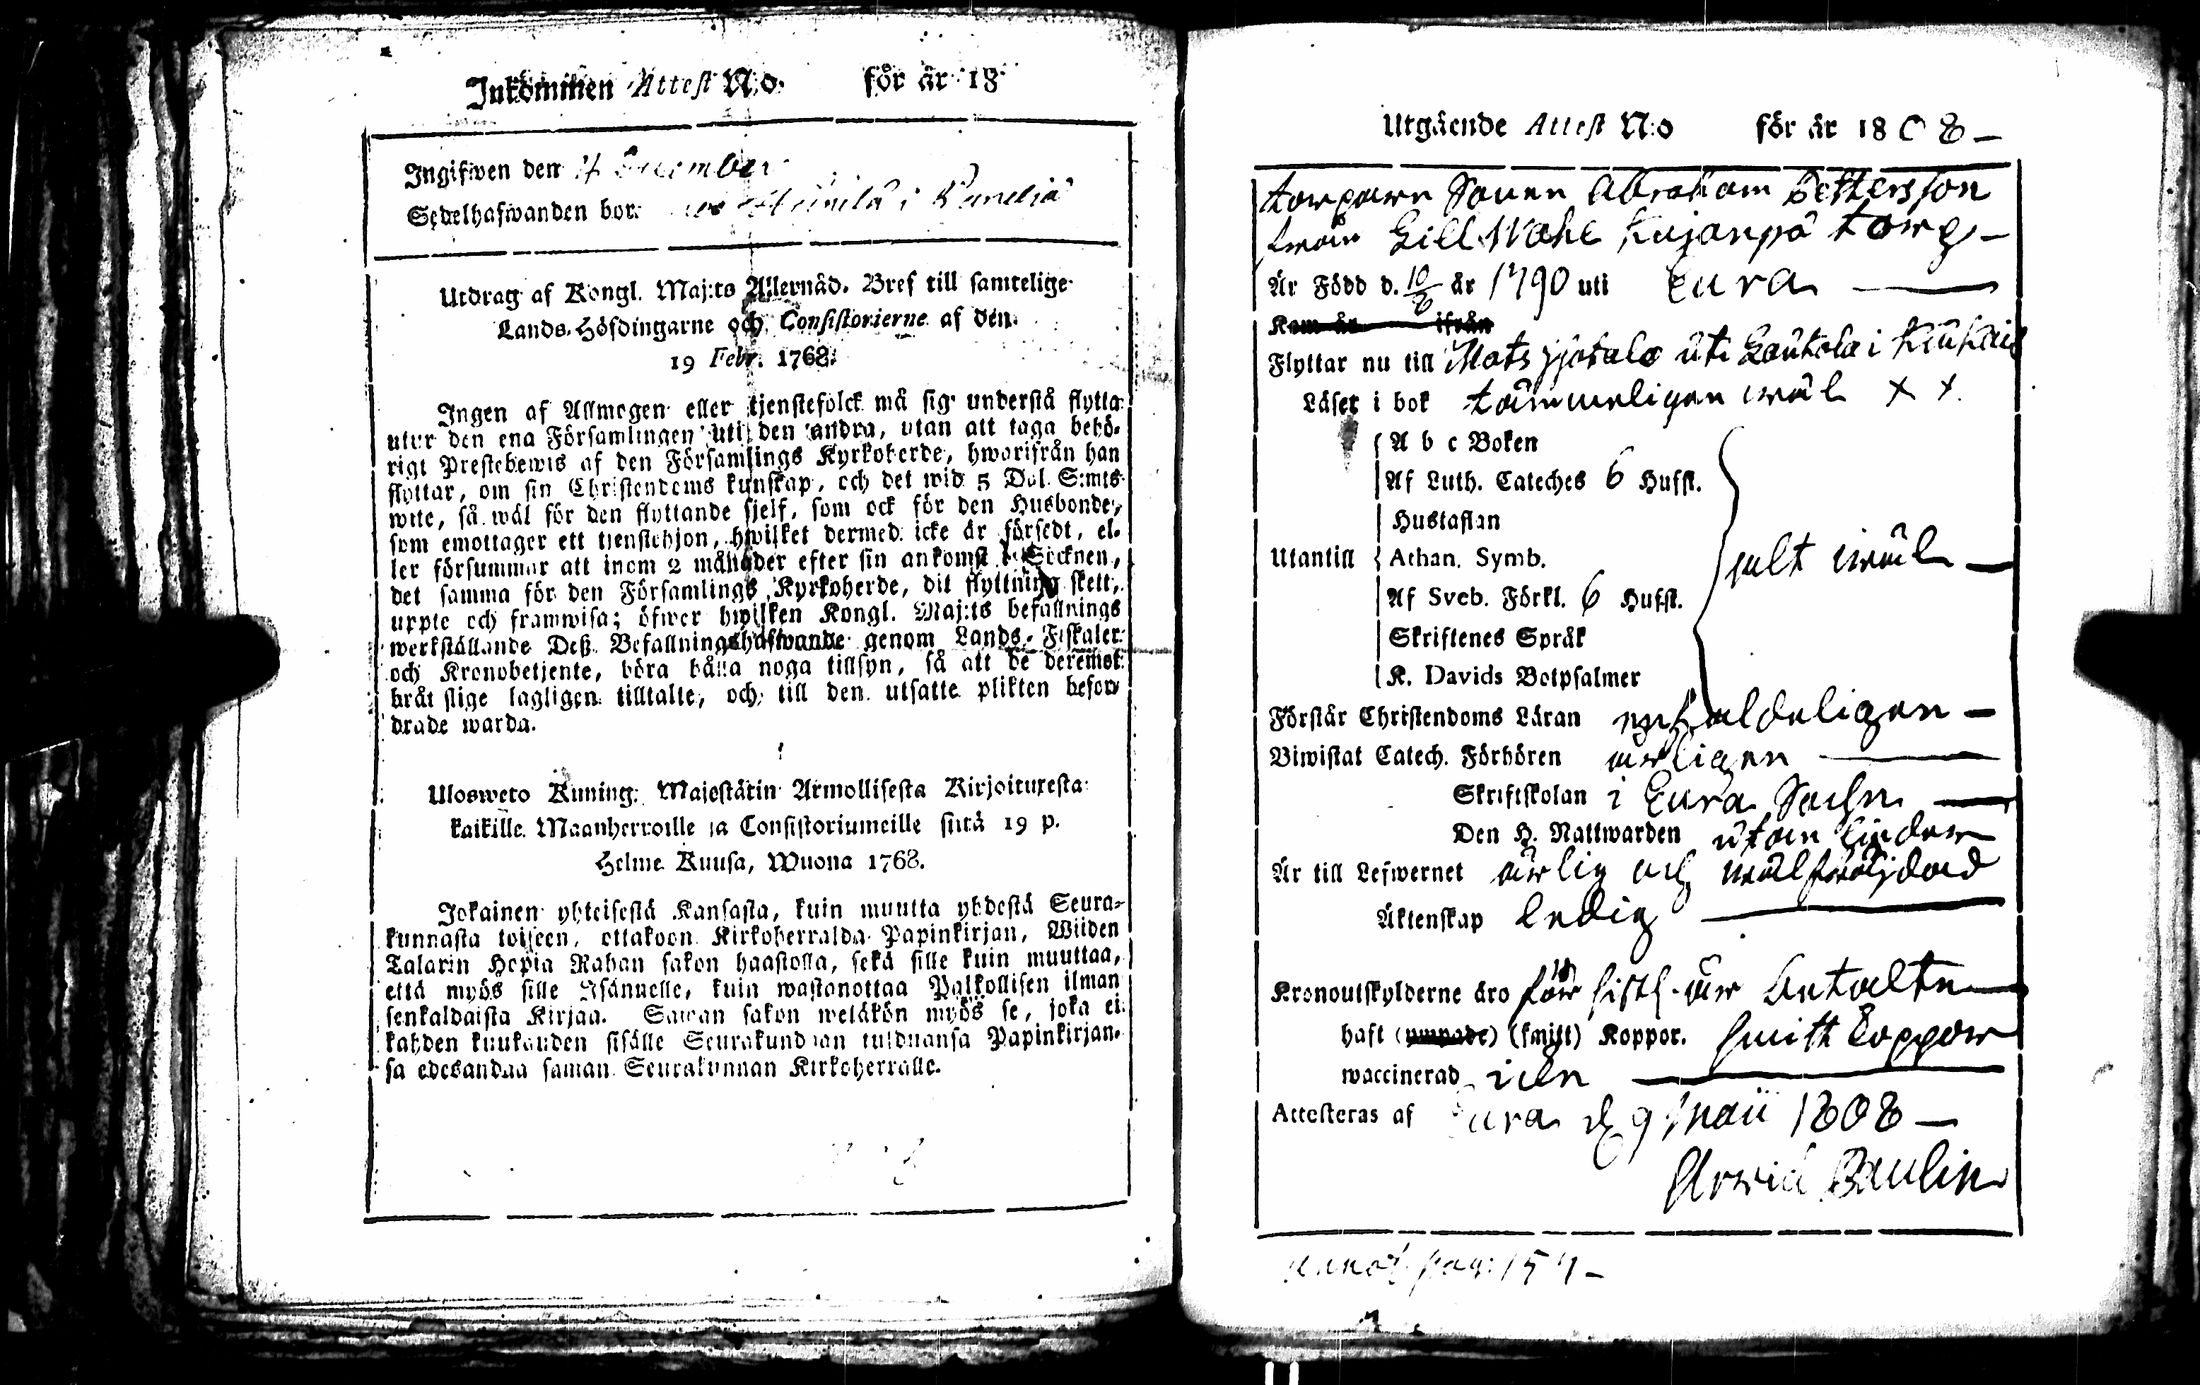 Inkommen Attest N:o för år 18
Ingifwen den 4 December
Sedelhafwanden bor
Utdrag af Kongl. Maj:ts Allernåd. Bref till samtelige
Lands-Höfdingarne och Consistorierne af den
19 Febr. 1768.
Ingen af Allmogen eller tjenstefolck må sig understå flytta
utur den ena Församlingen uti den andra, utan att taga behö-
rigt Prestebewis af den Församlings Kyrkoherde, hwarifrån han
flyttar, om sin Christendoms kunskap, och det wid 5 Dal. S:mts
wite, så wäl för den flyttande sjelf, som ock för den Husbonde,
som emottager ett tjenstehjon, hwilket dermed icke är försedt, el-
ler försummar att inom 2 månader efter sin ankomst i Socknen,
det samma för den Församlings Kyrkoherde, dit flyttning skett,
uppte och framwisa; öfwer hwilken Kongl. Maj:ts befallnings
werkställande Deß Befallningshafwande genom Lands-Fiskaler
och Kronobetjente, böra hålla noga tillsyn, så att de deremot
bråtslige lagligen tilltalte, och till den utsatte plikten befor-
drade warda.
Ulosweto Kuning. Majestätin Armollisesta Kirjoituxesta
kaikille Maanherroille ja Consistoriumeille siitä 19 p.
Helme Kuusa, Wuona 1768.
Jokainen yhteisestä Kansasta, kuin muutta yhdestä Seura-
kunnasta toiseen, ottakoon Kirkoherralda Papinkirjan, Wiiden
Talarin Hopia Rahan sakon haastolla, sekä sille kuin muuttaa,
että myös sille Isännelle, kuin wastanottaa Palkollisen ilman
senkaldaista Kirjaa. Saman sakon wetäkön myös se, joka ei
kahden kuukauden sisälle Seurakundaan tulduansa Papinkirjan-
sa edesandaa saman Seurakunnan Kirkoherralle.
Utgående Attest N:o för år 1808 –
torparn Sonen Abraham Pettersson
från Kujanpä torp –
Är Född d. 10/6 år 1790 uti Eura —
Kom år ifrån
Flyttar nu till Mats uti i
Läser i bok tämmeligen wäl x x
A b c Boken
Af Luth. Cateches 6 Hufst.
Hustaflan
Utantill Athan. Symb. wäl —
Af Sveb. Förkl. 6 Hufst.
Skriftenes Språk
K. Davids Botpsalmer
Förstår Christendoms Läran enfaldeligen –
Biwistat Catech. Förhören årligen —
Skriftskolan i Eura Sochn —
Den H. Nattwarden utan hinder
Är till Lefwernet ärlig och wälfräjdad
Äktenskap ledig —
Kronoutskylderne äro för sistl. år betalte —
haft (ympade) (smitt) Koppor. smitt koppor
waccinerad icke —
Attesteras af Eura d. 9 Maii 1808 –
Arvid Paulin
annot. pag: 157 –